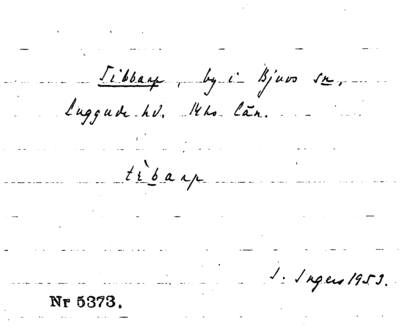 Tibbarp, by i Bjuvs sn,
Luggude hd. Mhs län.
tìbarp
I. Ingers 1953.
Nr 5373.